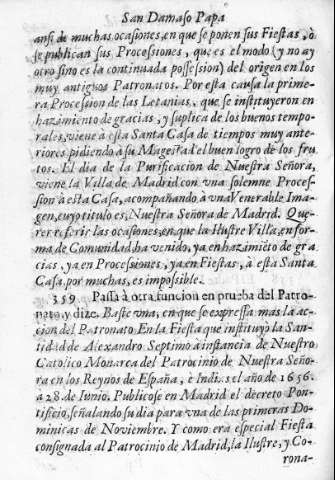 San Damaso Papa
ansi de muchas ocasiones, en que se ponen sus Fiestas, ò
se publican sus Processiones, que es el modo (y no ay
otro sino es la continuada possession) del origen en los
muy antiguos Patronatos. Por esta causa la prime-
ra Procession de las Letanias, que se instituyeron en
hazimiento de gracias, y suplica de los buenos tempo-
rales, viene à esta Santa Casa de tiempos muy ante-
riores pidiendo à su Magestad el buen logro de los fru
tos. El dia de la Purificacion de Nuestra Señora,
viene la Villa de Madrid con vna solemne Proces-
sion à esta Casa, acompañando à vna Venerable Ima-
gen, cuyo titulo es, Nuestra Señora de Madrid. Que-
rer referir las ocasiones, en que la Ilustre Villa, en for
ma de Comunidad ha venido, ya en hazimiẽto de gra
cias, ya en Processiones, ya en Fiestas, à esta Santa
Casa, por muchas, es impossible.
359 Passa à otra funcion en prueba del Patro-
nato, y dize. Baste vna, en que se expressa mas la ac-
cion del Patronato. En la Fiesta que instituyò la San-
tidad de Alexandro Septimo à instancia de Nuestro
Catolico Monarca del Patrocinio de Nuestra Seño-
ra en los Reynos de España, è Indias el año de 1656.
à 28 de Iunio. Publicose en Madrid el decreto Pon-
tificio, señalando su dia para vna de las primeras Do-
minicas de Noviembre. Y como era especial Fiesta
consignada al Patrocinio de Madrid, la Ilustre, y Co-
rona-